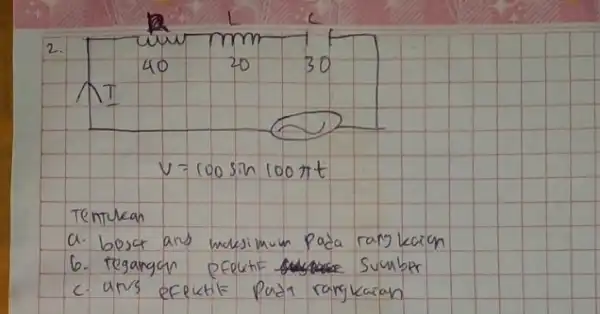 R L C
2.
40 20 30
I
V = 100 sin 100 πt
Tentukan
a. besar arus maksimum pada rangkaian
b. tegangan efektif sumber
c. arus efektif pada rangkaian